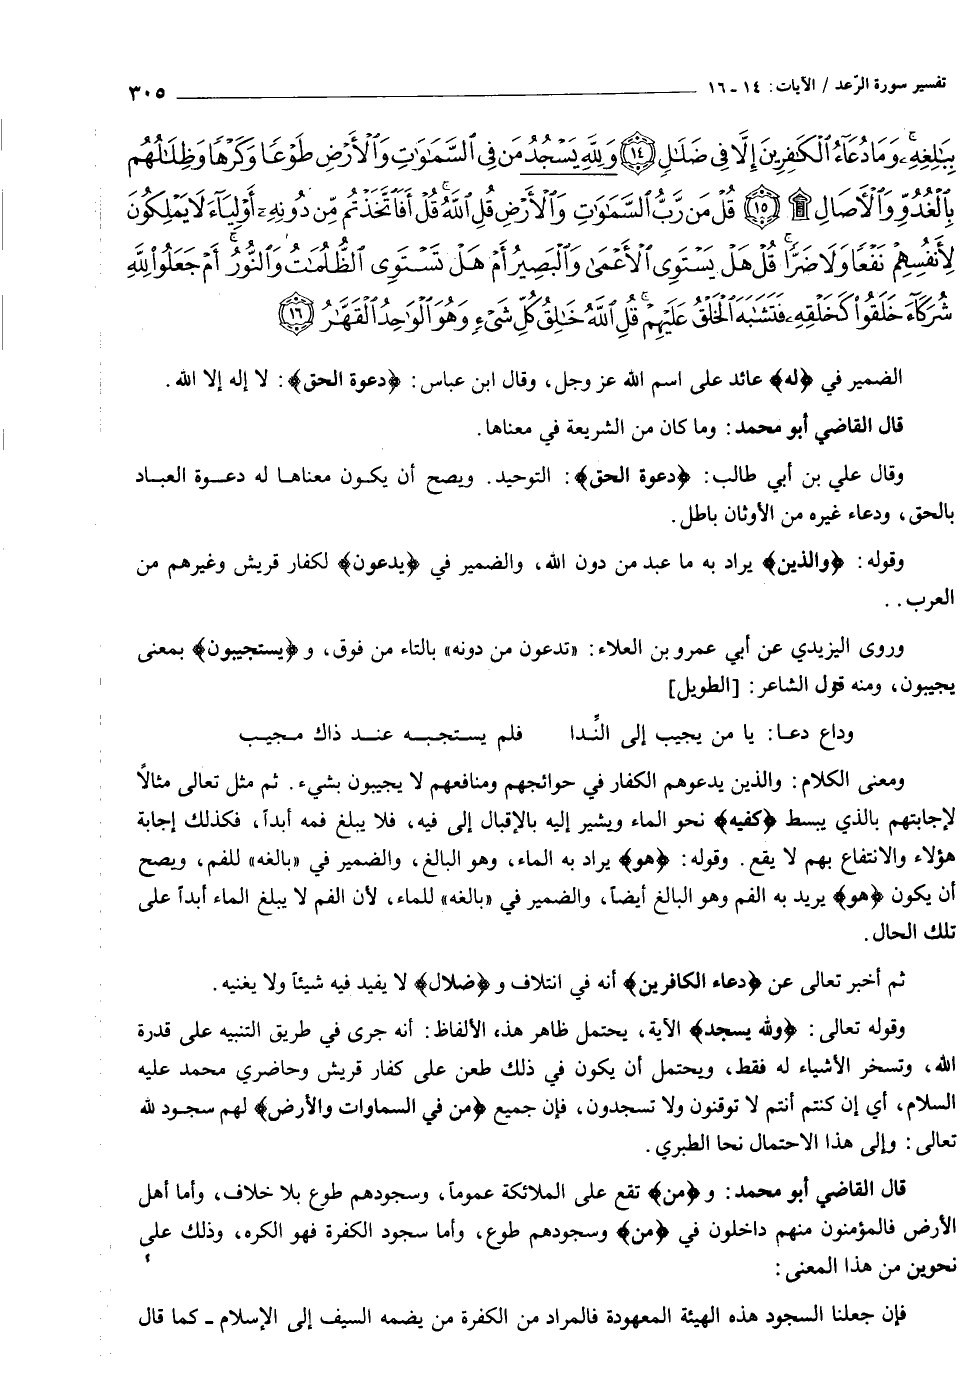 تفسير سورة الرّعد / الآيات: ١٤ ـ ١٦ ٣٠٥
بِبَٰلِغِهِۦۚ وَمَا دُعَآءُ ٱلْكَٰفِرِينَ إِلَّا فِى ضَلَٰلٍ ۝١٤ وَلِلَّهِ يَسْجُدُ مَن فِى ٱلسَّمَٰوَٰتِ وَٱلْأَرْضِ طَوْعًا وَكَرْهًا وَظِلَٰلُهُم
بِٱلْغُدُوِّ وَٱلْءَاصَالِ ۩ ۝١٥ قُلْ مَن رَّبُّ ٱلسَّمَٰوَٰتِ وَٱلْأَرْضِ قُلِ ٱللَّهُۚ قُلْ أَفَٱتَّخَذْتُم مِّن دُونِهِۦٓ أَوْلِيَآءَ لَا يَمْلِكُونَ
لِأَنفُسِهِمْ نَفْعًا وَلَا ضَرًّاۚ قُلْ هَلْ يَسْتَوِى ٱلْأَعْمَىٰ وَٱلْبَصِيرُ أَمْ هَلْ تَسْتَوِى ٱلظُّلُمَٰتُ وَٱلنُّورُۗ أَمْ جَعَلُوا۟ لِلَّهِ
شُرَكَآءَ خَلَقُوا۟ كَخَلْقِهِۦ فَتَشَٰبَهَ ٱلْخَلْقُ عَلَيْهِمْۚ قُلِ ٱللَّهُ خَٰلِقُ كُلِّ شَىْءٍ وَهُوَ ٱلْوَٰحِدُ ٱلْقَهَّٰرُ ۝١٦
الضمير في ﴿له﴾ عائد على اسم الله عز وجل، وقال ابن عباس: ﴿دعوة الحق﴾: لا إله إلا الله.
قال القاضي أبو محمد: وما كان من الشريعة في معناها.
وقال علي بن أبي طالب: ﴿دعوة الحق﴾: التوحيد. ويصح أن يكون معناها له دعوة العباد
بالحق، ودعاء غيره من الأوثان باطل.
وقوله: ﴿والذين﴾ يراد به ما عبد من دون الله، والضمير في ﴿يدعون﴾ لكفار قريش وغيرهم من
العرب..
وروى اليزيدي عن أبي عمرو بن العلاء: «تدعون من دونه» بالتاء من فوق، و﴿يستجيبون﴾ بمعنى
يجيبون، ومنه قول الشاعر: [الطويل]
وداع دعا: يا من يجيب إلى النِّدا فلم يستجبه عند ذاك مجيب
ومعنى الكلام: والذين يدعوهم الكفار في حوائجهم ومنافعهم لا يجيبون بشيء. ثم مثل تعالى مثالاً
لإجابتهم بالذي يبسط ﴿كفيه﴾ نحو الماء ويشير إليه بالإقبال إلى فيه، فلا يبلغ فمه أبداً، فكذلك إجابة
هؤلاء والانتفاع بهم لا يقع. وقوله: ﴿هو﴾ يراد به الماء، وهو البالغ، والضمير في «بالغه» للفم، ويصح
أن يكون ﴿هو﴾ يريد به الفم وهو البالغ أيضاً، والضمير في «بالغه» للماء، لأن الفم لا يبلغ الماء أبداً على
تلك الحال.
ثم أخبر تعالى عن ﴿دعاء الكافرين﴾ أنه في انتلاف و﴿ضلال﴾ لا يفيد فيه شيئاً ولا يغنيه.
وقوله تعالى: ﴿ولله يسجد﴾ الآية، يحتمل ظاهر هذه الألفاظ: أنه جرى في طريق التنبيه على قدرة
الله، وتسخر الأشياء له فقط، ويحتمل أن يكون في ذلك طعن على كفار قريش وحاضري محمد عليه
السلام، أي إن كنتم أنتم لا توقنون ولا تسجدون، فإن جميع ﴿من في السماوات والأرض﴾ لهم سجود لله
تعالى: وإلى هذا الاحتمال نحا الطبري.
قال القاضي أبو محمد: و﴿من﴾ تقع على الملائكة عموماً، وسجودهم طوع بلا خلاف، وأما أهل
الأرض فالمؤمنون منهم داخلون في ﴿من﴾ وسجودهم طوع، وأما سجود الكفرة فهو الكره، وذلك على
نحوين من هذا المعنى:
فإن جعلنا السجود هذه الهيئة المعهودة فالمراد من الكفرة من يضمه السيف إلى الإسلام ـ كما قال